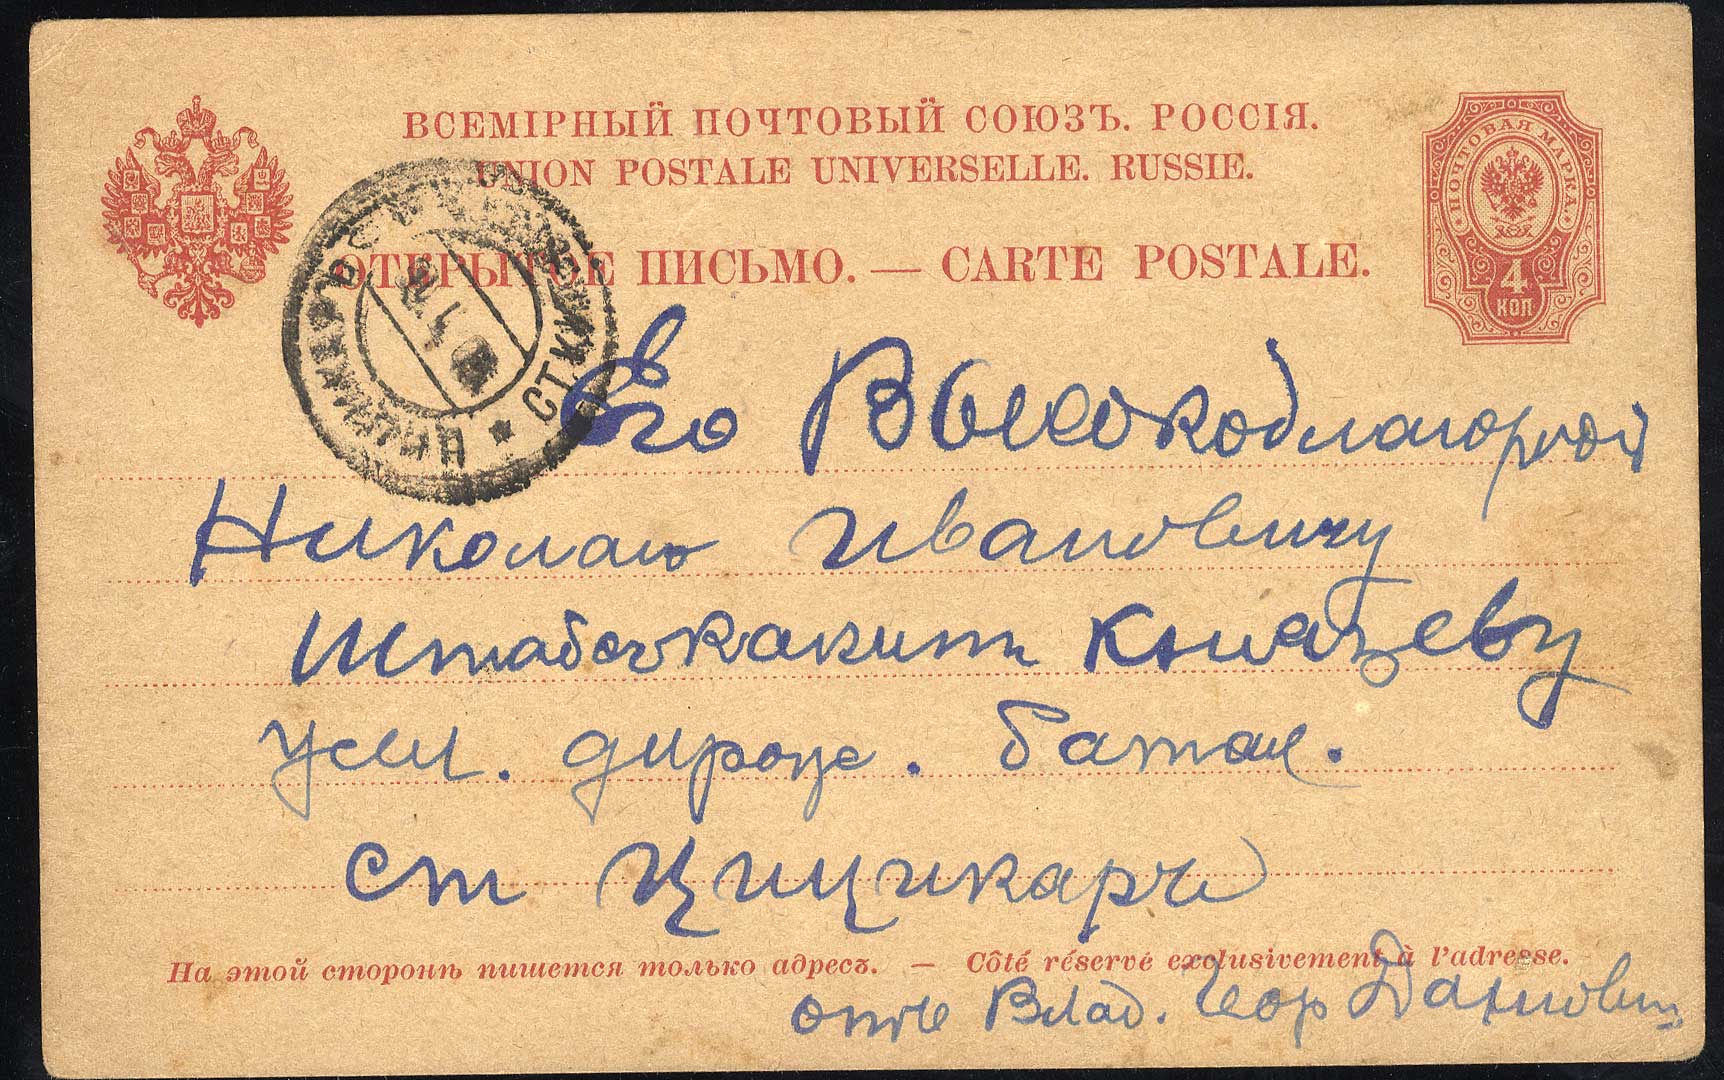 ВСЕМІРНЫЙ ПОЧТОВЫЙ СОЮЗЪ. РОССІЯ.
UNION POSTALE UNIVERSELLE. RUSSIE.
ОТКРЫТОЕ ПИСЬМО. — CARTE POSTALE.
ПОЧТОВАЯ МАРКА
4
КОП
ЦИЦИКАРЪ
СТ. КИТ.
Его Высокоблагород
Николаю Ивановичу
Штабсъкапит Князеву
ст Цицикаръ
На этой сторонѣ пишется только адресъ. — Côté réservé exclusivement à l'adresse.
отъ Влад. Геор Даниович